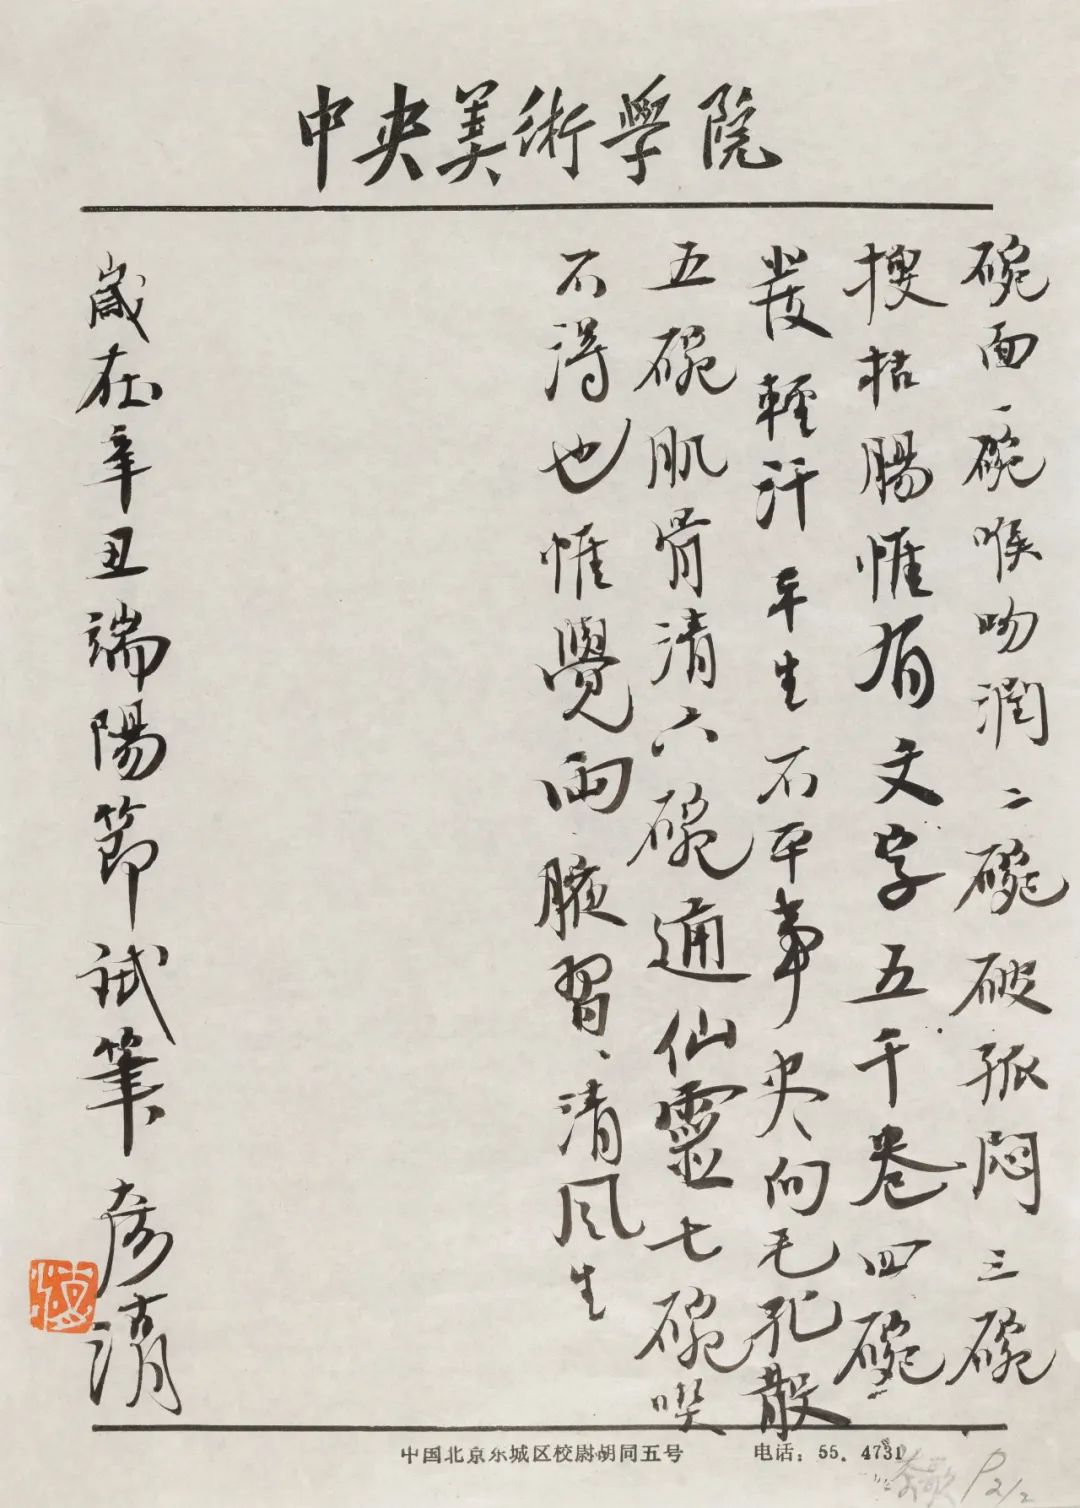 中央美術學院
碗面一碗喉吻潤二碗破孤悶三碗
搜枯腸惟有文字五千卷四碗
發輕汗平生不平事尖向毛孔散
五碗肌骨清六碗通仙靈七碗喫
不得也惟覺兩腋習、清风生
歲在辛丑端陽節試筆 彥清
中国北京东城区校尉胡同五号 电话：55.4731
茶歌 P2/2